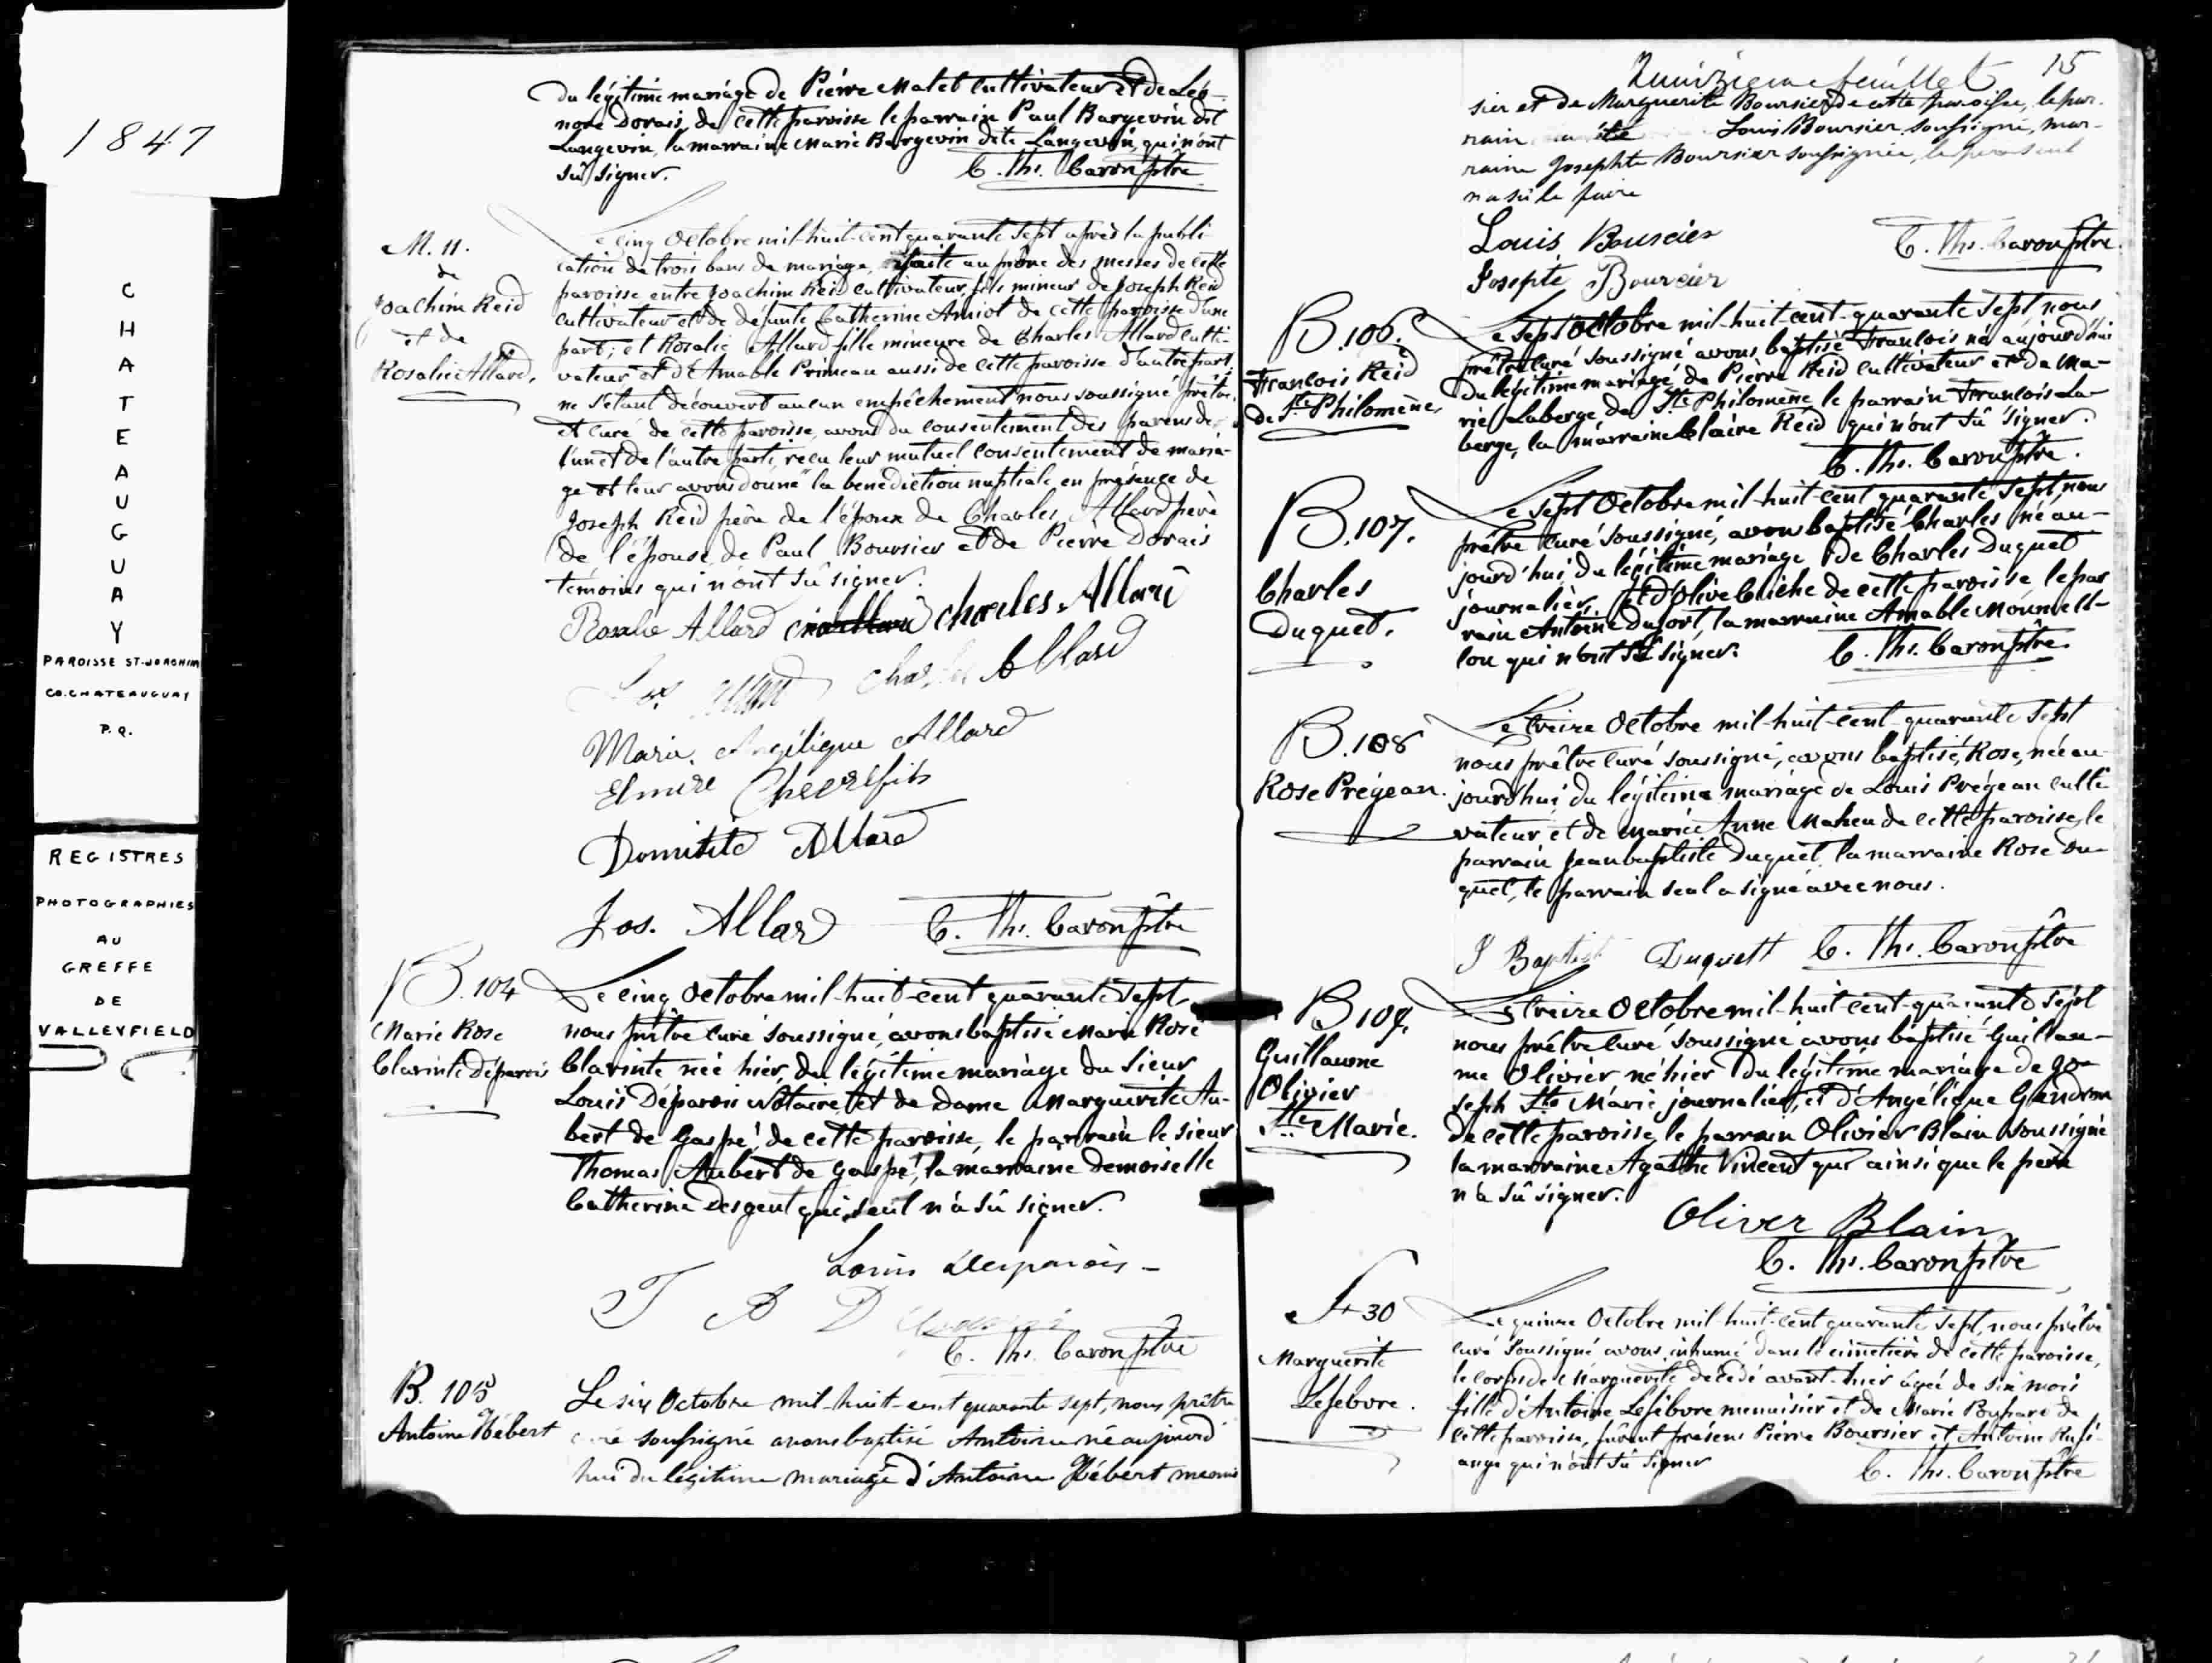 1847
CHATEAUGUAY
PAROISSE ST-JOACHIM
CO. CHATEAUGUAY
P.Q.
REGISTRES
PHOTOGRAPHIES
AU
GREFFE
DE
VALLEYFIELD
du légitime mariage de Pierre Malet cultivateur et de Léo-
nore Dorais, de cette paroisse le parrain Paul Bargevin dit
Langevin, la marraine Marie Bargevin dite Langevin, qui n'ont
sû signer. C. Ths. Caron ptre
M. 11.
de
Joachim Reid
et de
Rosalie Allard.
Le cinq Octobre mil-huit-cent quarante sept après la publi-
cation de trois bans de mariage, faite au prône des messes de cette
paroisse entre Joachim Reid cultivateur, fils mineur de Joseph Reid
cultivateur et de défunte Catherine Amiot de cette paroisse d'une
part; et Rosalie Allard fille mineure de Charles Allard culti-
vateur et d'Amable Primeau aussi de cette paroisse d'autre part;
ne s'étant découvert aucun empêchement nous soussigné prêtre
et curé de cette paroisse, avons du consentement des parens de
l'un et de l'autre parti, reçu leur mutuel consentement de maria-
ge et leur avons donné la bénédiction nuptiale en présence de
Joseph Reid père de l'époux de Charles Allard père
de l'épouse, de Paul Boursier et de Pierre Dorais
témoins qui n'ont sû signer.
Rosalie Allard charles Allard
Allard
Marie Angélique Allard
Elmire Cheerefils
Domitile Allard
Jos. Allard C. Ths. Caron ptre
B. 104
Marie Rose
Clarinte Déparois
Le cinq Octobre mil-huit-cent quarante sept
nous prêtre curé soussigné, avons baptisé Marie Rose
Clarinte née hier, du légitime mariage du Sieur
Louis Déparois Notaire et de Dame Marguerite Au-
bert de Gaspé, de cette paroisse, le parrain le sieur
Thomas Aubert de Gaspé, la marraine demoiselle
Catherine Desgent qui seul n'a sû signer.
Louis Desparois
T A D
C. Ths. Caron ptre
B. 105
Antoine Hébert
Le six Octobre mil-huit-cent quarante sept, nous prêtre
curé soussigné avons baptisé Antoine né aujourd
hui du légitime mariage d'Antoine Hébert menui
Quinzieme feuillet 15
sier et de Marguerite Boursier de cette paroisse, le par-
rain Louis Boursier soussigné, mar-
raine Josephte Boursier soussignée, le
n'a sû le faire
Louis Boursier C. Ths. Caron ptre.
Josepte Bourcier
B. 106.
François Reid
de Ste Philomène
Le sept Octobre mil-huit-cent-quarante sept nous
prêtre curé soussigné avons baptisé François né aujourd'hui
du légitime mariage de Pierre Reid cultivateur et de Ma-
rie Laberge de Ste Philomène le parrain François La-
berge, la marraine Claire Reid qui n'ont sû signer.
C. Ths. Caron ptre.
B. 107.
Charles
Duquet.
Le sept Octobre mil-huit-cent quarante sept, nous
prêtre curé soussigné, avons baptisé Charles né au-
jourd'hui du légitime mariage de Charles Duquet
journalier, et d'Olive Cuiche de cette paroisse le par
rain Antoine Dufort, la marraine Amable
qui n'ont sû signer. C. Ths. Caron ptre.
B. 108
Rose Prégean.
Le treize Octobre mil-huit-cent-quarante sept
nous prêtre curé soussigné, avons baptisé, Rose, née au
jourd'hui du légitime mariage de Louis Prégean culti
vateur et de Marie Anne Maheu de cette paroisse, le
parrain Jean baptiste Duquet, la marraine Rose Du-
quet, le parrain seul a signé avec nous.
J Baptist Duquett C. Ths. Caron ptre
B 109.
Guillaume
Olivier
Ste Marie.
Le treize Octobre mil-huit-cent-quarante sept
nous prêtre curé soussigné avons baptisé Guillau-
me Olivier né hier du légitime mariage de Jo-
seph Ste Marie journalier, et d'Angélique Gendron
de cette paroisse, le parrain Olivier Blain soussigné
la marraine Agathe Vincent qui ainsi que le père
n'a sû signer.
Oliver Blain
C. Ths. Caron ptre
S+30
Marguerite
Lefebvre.
Le quinze Octobre mil-huit-cent quarante sept, nous prêtre
curé soussigné avons inhumé dans le cimetière de cette paroisse,
le corps de Marguerite décédé avant-hier âgée de six mois
fille d'Antoine Lefebvre menuisier et de Marie de
cette paroisse, furent présens Pierre Boursier et Antoine
qui n'ont sû signer
C. Ths. Caron ptre